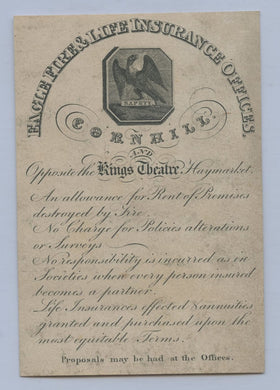 EAGLE FIRE & LIFE INSURANCE OFFICES,
SAFETY
CORNHILL.
AND
Opposite the Kings Theatre. Haymarket.
An allowance for Rent of Premises
destroyed by Fire.
No Charge for Policies alterations
or Surveys
No responsibility is incurred as in
Societies when every person insured
becomes a partner.
Life Insurances effected & annuities
granted and purchased upon the
most equitable Terms.
Proposals may be had at the Offices.